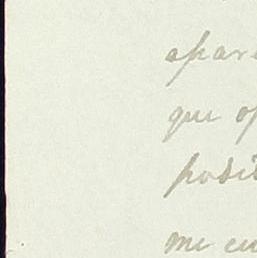 apar
que op
posi
me en